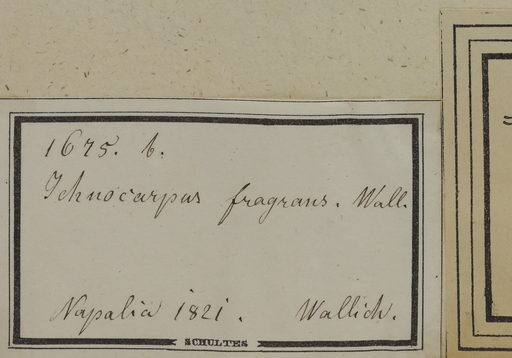 1675. b.
Ichnocarpus fragrans. Wall.
Napalia 1821. Wallich.
SCHULTES